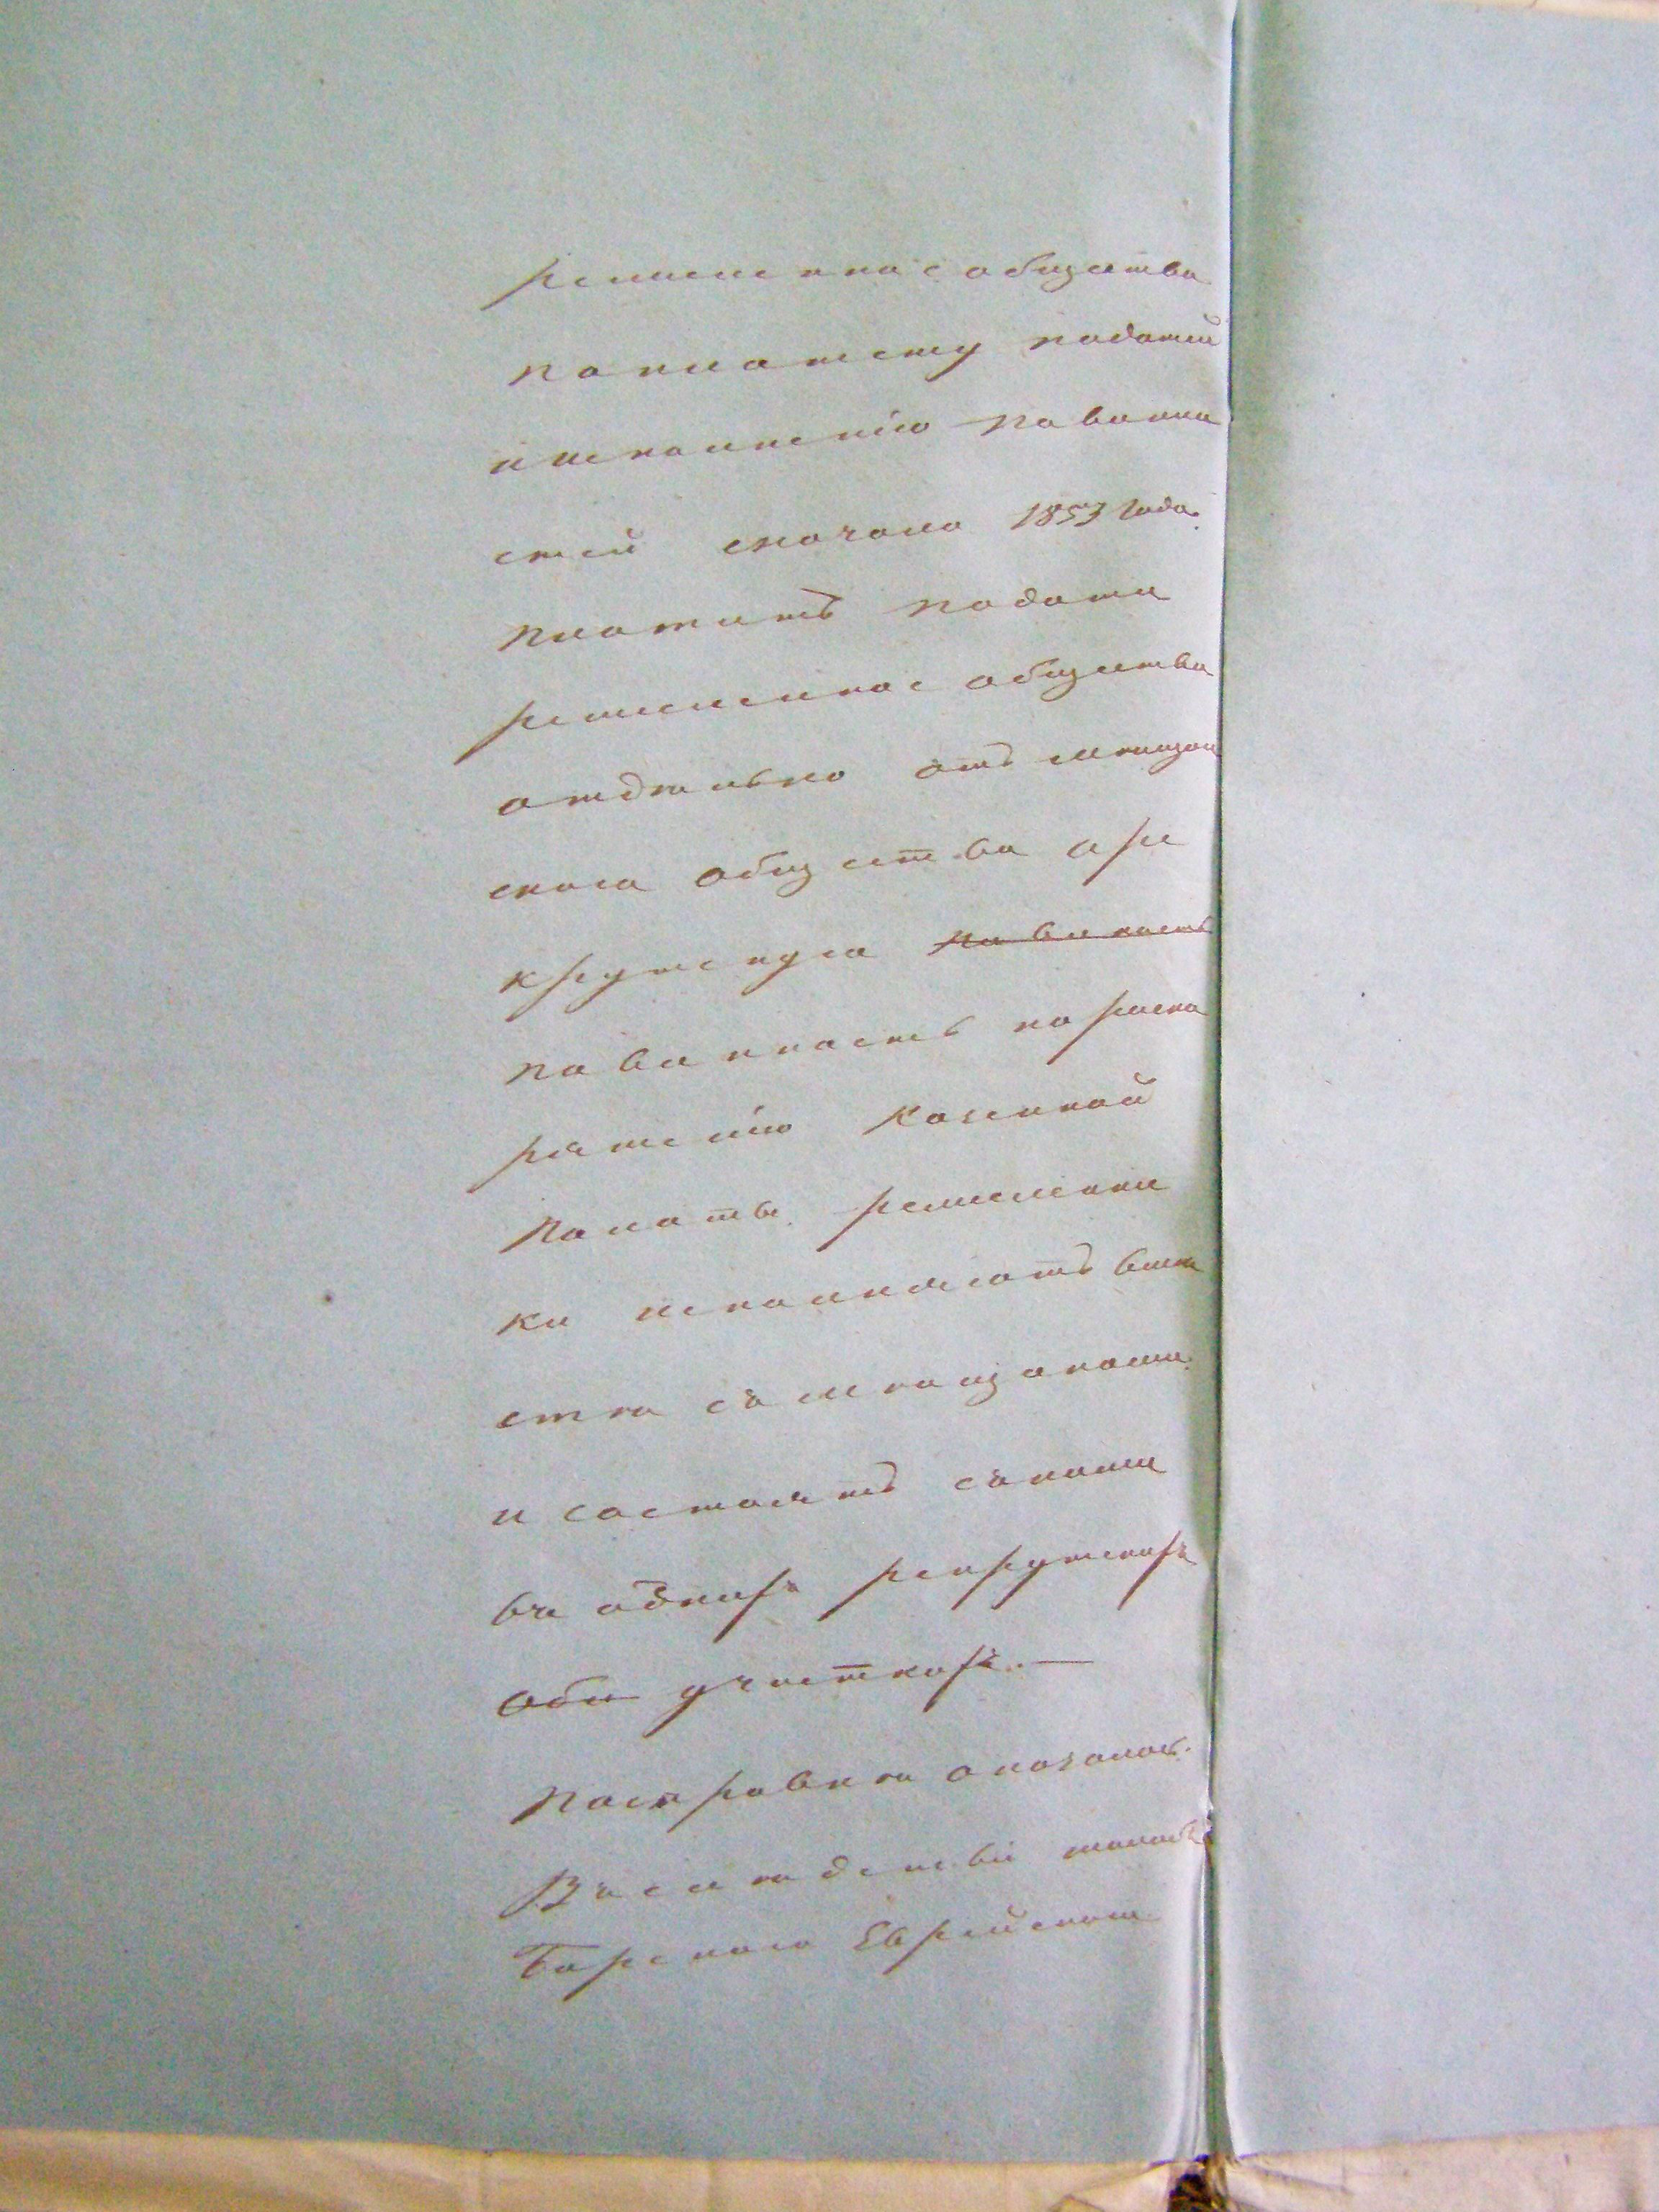 ремесленное общества
поплатежу податей
и исполнению повинно
стей сначала 1853 года.
платитъ подати
ремесленное общества
отдѣльно отъ мѣщан
скаго общества а ре
крутскую повиность
повинность по распо
ряженію Казенной
Палаты ремесленни
ки исполняютъ вмѣ
стѣ съ мѣщанами
и состоятъ съ ними
въ однихъ рекрутскихъ
участкахъ. —
По справкѣ оказалось.
Въ
Еврейском